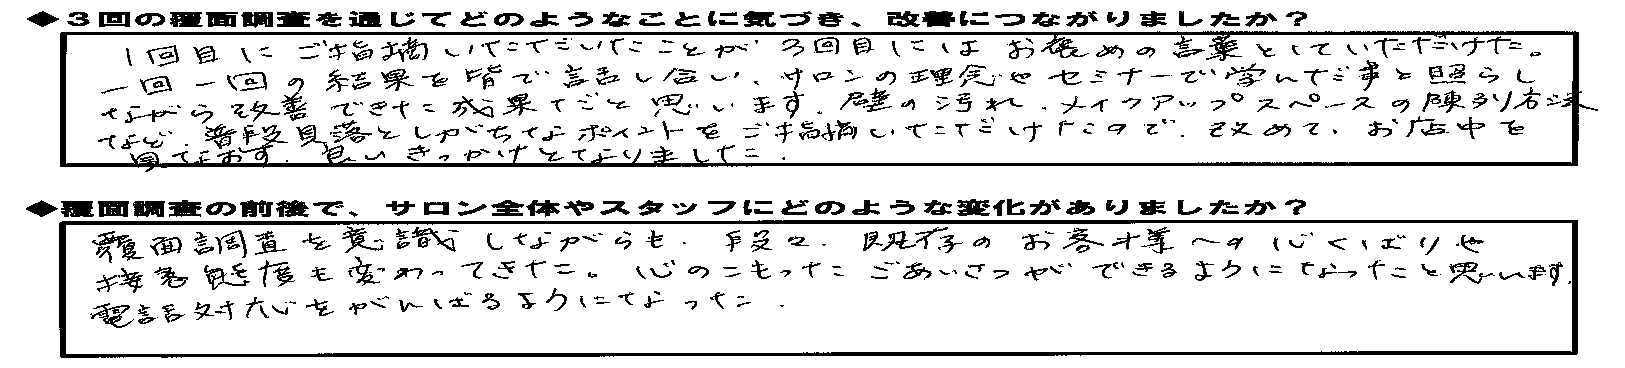 ◆３回の覆面調査を通じてどのようなことに気づき、改善につながりましたか？
１回目にご指摘いただいたことが３回目にはお褒めの言葉としていただけた。
一回一回の結果を皆で話し合い、サロンの理念やセミナーで学んだ事と照らし
ながら改善できた成果だと思います。壁の汚れ、メイクアップスペースの陳列方法
など、普段見落としがちなポイントをご指摘いただけたので、改めて、お店中を
見なおす、良いきっかけとなりました。
◆覆面調査の前後で、サロン全体やスタッフにどのような変化がありましたか？
覆面調査を意識しながらも、段々、既存のお客様への心くばりや
接客態度も変わってきた。心のこもったごあいさつができるようになったこと思います。
電話対応をがんばるようになった。